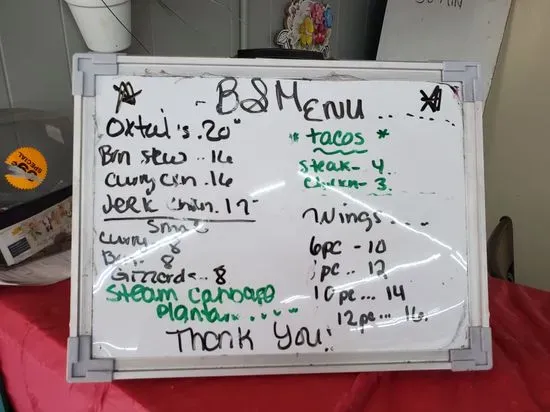 B&MENU
Oxtail's .20"
Brn stew .. 16
Curry Ckn . 16
JERK Chikn. 17-
Small
Curry 8
8
Gizzards .. 8
Steam Cabbage
Plantain
* tacos *
Steak - 4
Chikn - 3.
Wings....
6pc - 10
pc .. 12
10pc... 14
12pc... 16.
Thank You!
SPECIAL
30 MIN